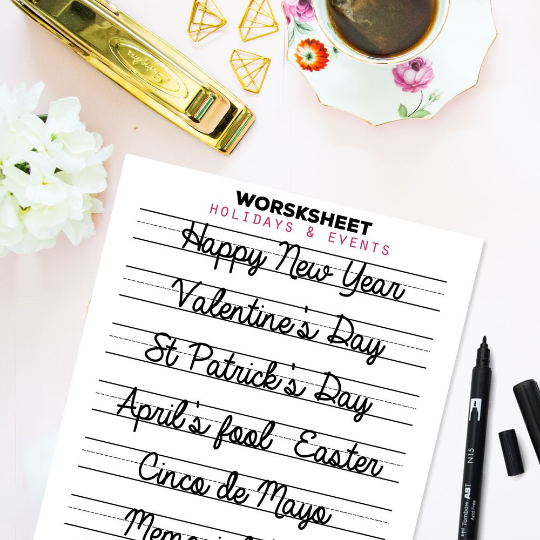 WORSKSHEET
HOLIDAYS & EVENTS
Happy New Year
Valentine's Day
St Patrick's Day
April's fool Easter
Cinco de Mayo
N15
Tombow ABT
Acid Free